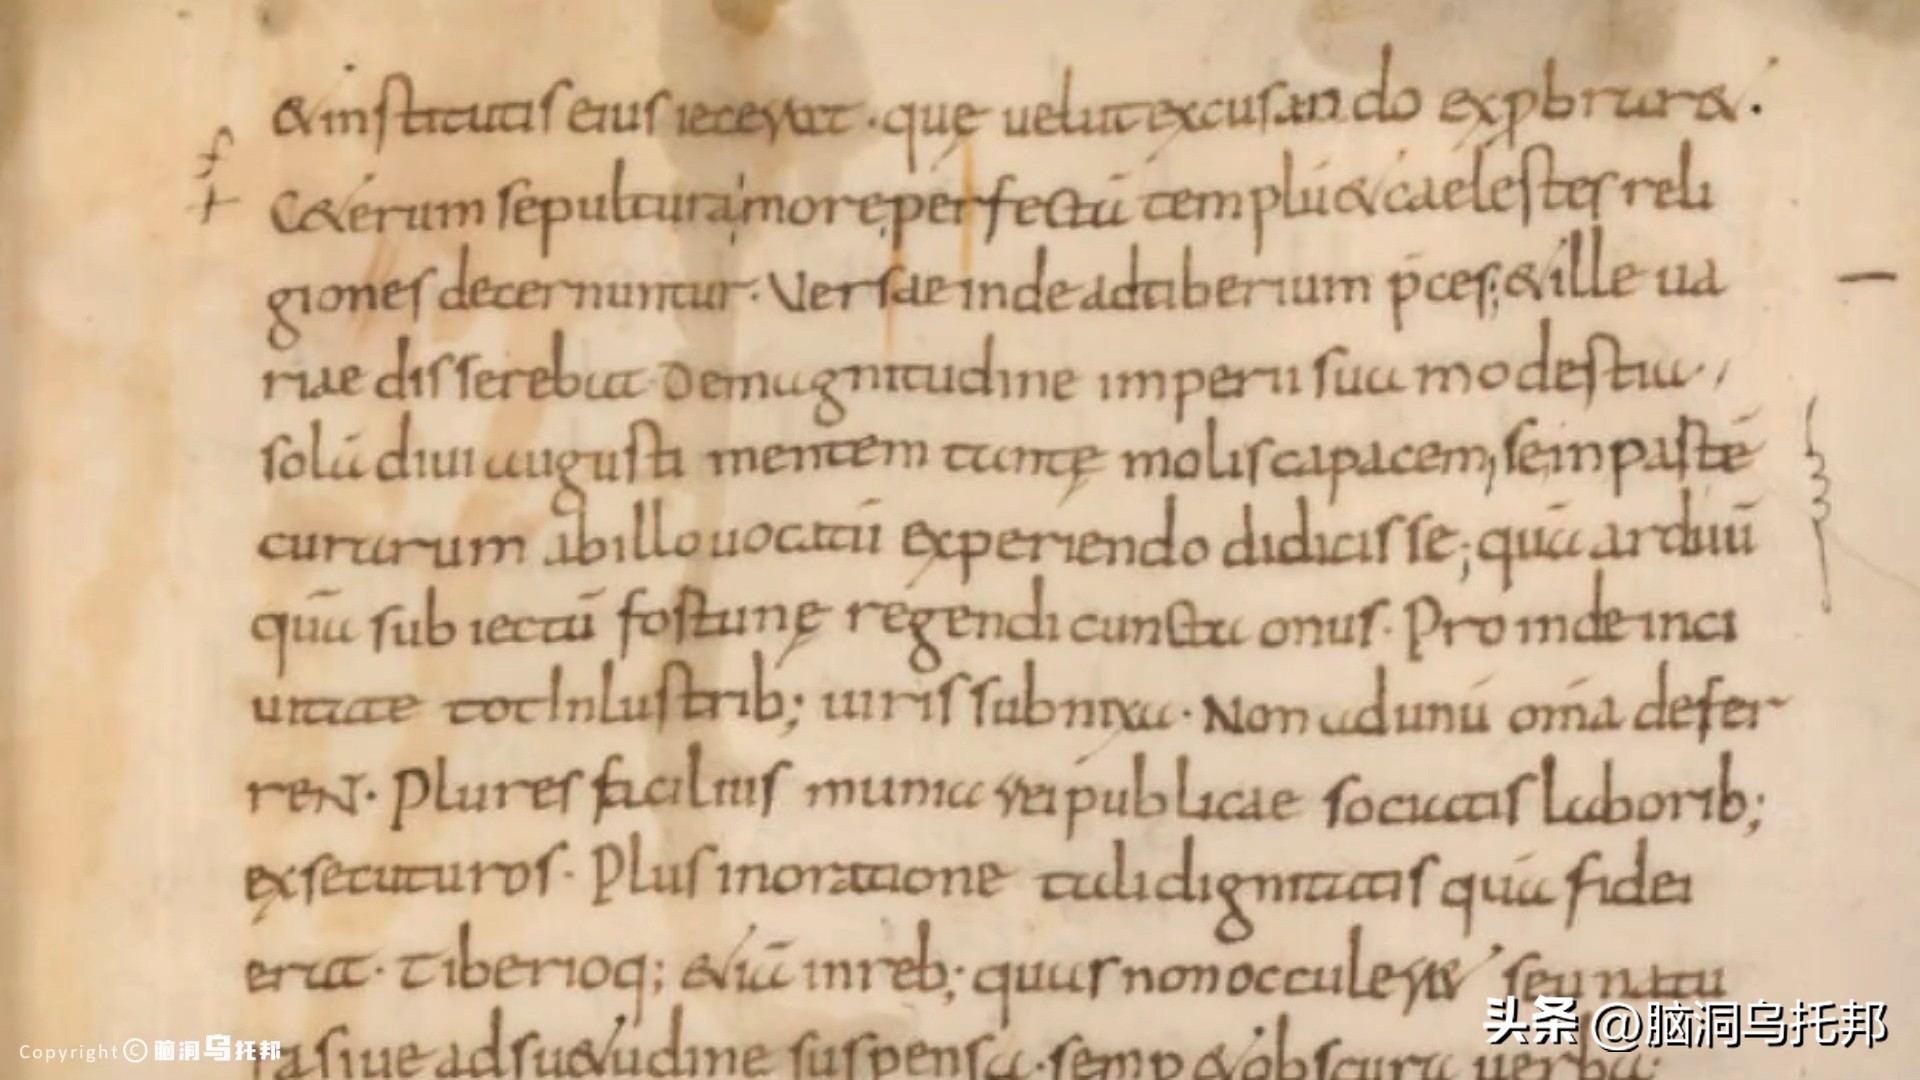 & institutis eius iecerat · quę uelut excusando exp̱bruar& ·
C&erum sepultura more perfectū templū & caelestes reli
giones decernuntur · Versae inde ad tiberium p̄ces; & ille ua
riae disserebat De magnitudine imperii sua modestia,
solū diui augusti mentem tantę molis capacem, se in partē
curarum ab illo uocatū experiendo didicisse; quā arduū
quā subiectū fostunę regendi cuncta onus · Proinde in ci
uitate tot Inlustrib; uiris subnixa · Non ad unū om̄a defer
reN · Plures facilius munia rei publicae sociatis laborib;
exsecuturos · Plus in oratione tali dignitatis quā fidei
erat · Tiberioq; &iā in reb; quas non occuler& seu natu
ra siue adsu&udine suspensa · semp & obscura uerba:
头条 @脑洞乌托邦
Copyright © 脑洞乌托邦